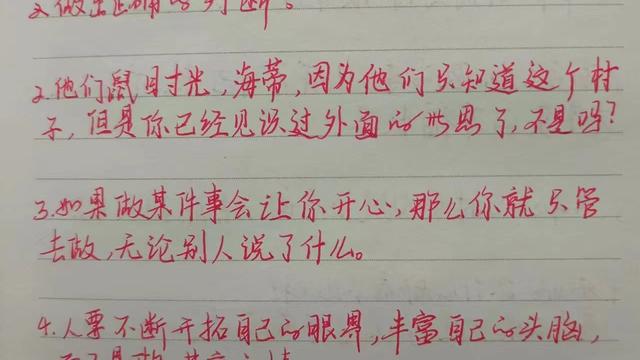 做出正确的判断。
2.他们鼠目寸光,海蒂,因为他们只知道这个村
子,但是你已经见识过外面的世思了,不是吗?
3.如果做某件事会让你开心,那么你就只管
去做,无论别人说了什么。
4.人要不断开拓自己的眼界,丰富自己的头脑,